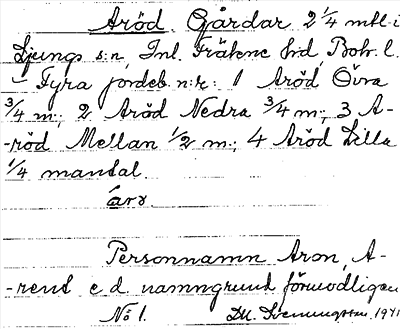 Aröd. Gårdar 2 1/4 mtl i
Ljungs s:n, Inl. Fräkne hrd, Boh. l.
– Fyra jordeb. n:r: 1 Aröd Övra
3/4 m.; 2 Aröd Nedra 3/4 m.; 3 A-
-röd Mellan 1/2 m.; 4 Aröd Lilla
1/4 mantal.
Personnamn Aron, A-
-rend e. d. namngrund förmodligen
No 1. 1941